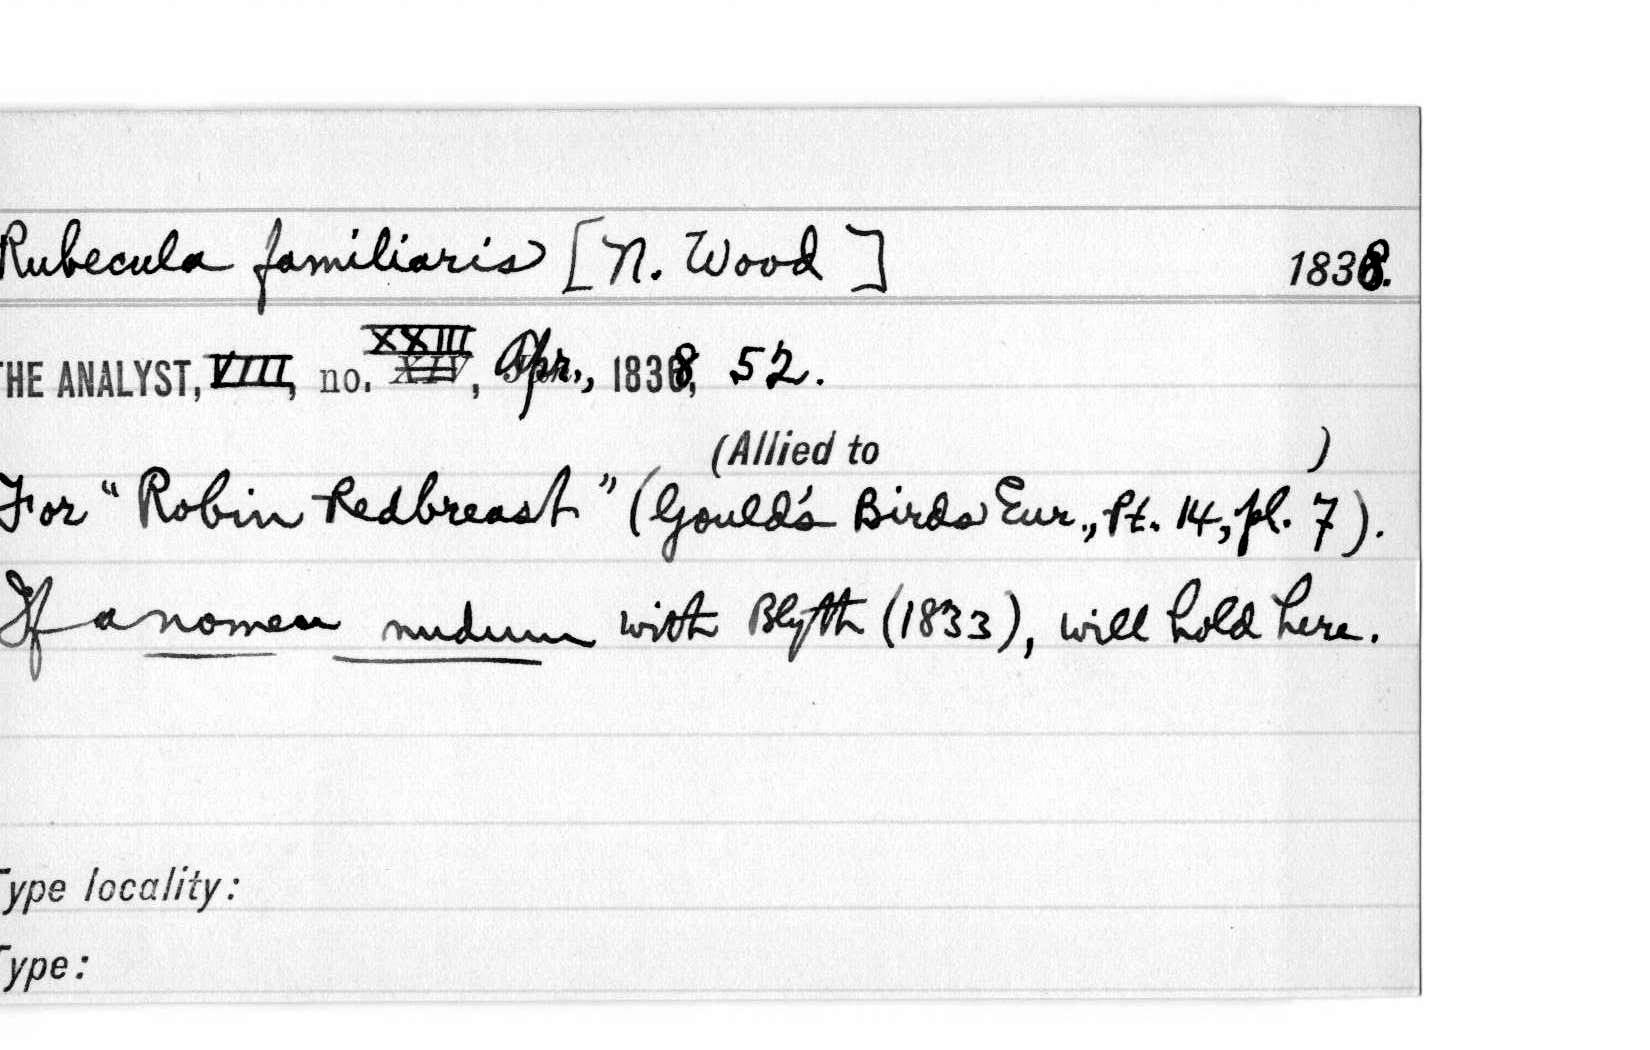 Rubecula familiaris [N. Wood] 1838.
THE ANALYST, VIII, no. XXIII, Apr., 1838, 52.
(Allied to )
For "Robin Redbreast" (Gould's Birds Eur., Pt. 14, pl. 7).
If a nomen nudum with Blyth (1833), will hold here.
Type locality:
Type: